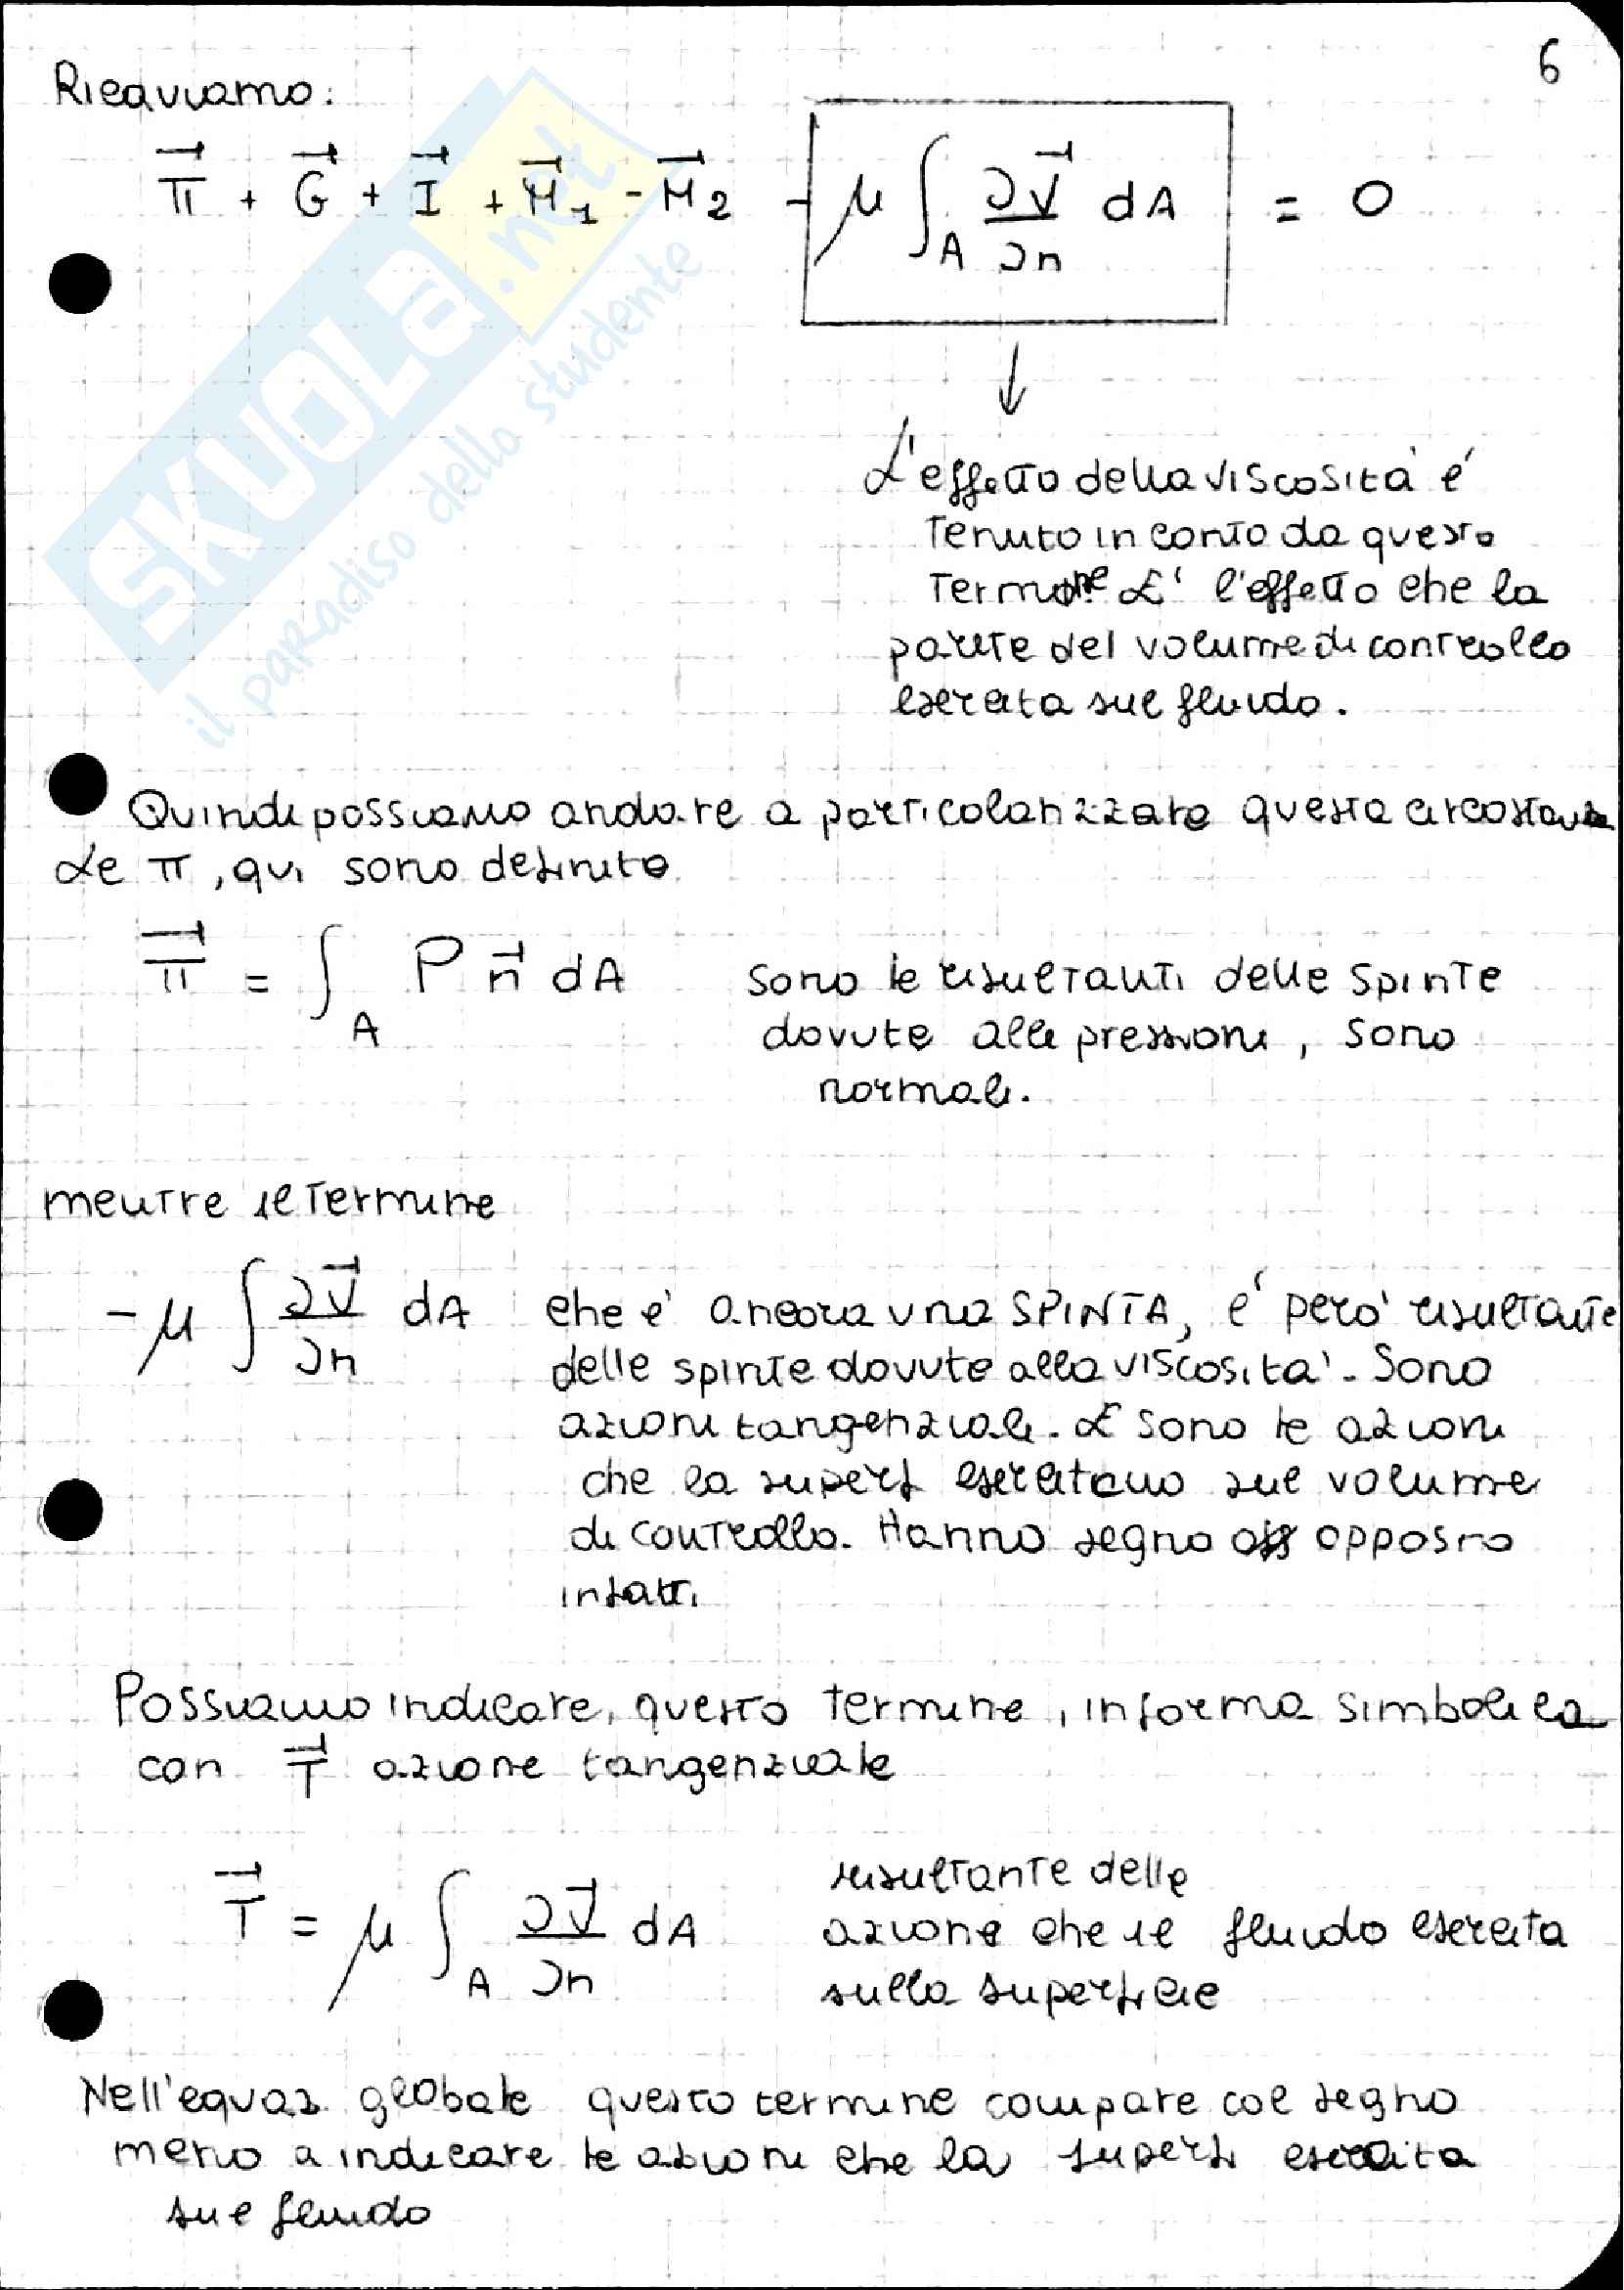 6
Ricaviamo:
Π⃗ + G⃗ + I⃗ + M⃗₁ - M⃗₂ - μ ∫_A ∂V⃗/∂n dA = 0
L'effetto della viscosità é
tenuto in conto da questo
termine E' l'effetto che la
parete del volume di controllo
esercita sul fluido.
Quindi possiamo andare a particolarizzare questa circostanza
Le π, qui sono definite
Π⃗ = ∫_A P n⃗ dA
sono le risultanti delle spinte
dovute alle pressioni, sono
normali.
mentre il termine
-μ ∫ ∂V⃗/∂n dA
che e' ancora una SPINTA, é però risultante
delle spinte dovute alla viscosita'. Sono
azioni tangenziali. E sono le azioni
che la superf esercitano sul volume
di controllo. Hanno segno opposto
infatti
Possiamo indicare, questo termine, in forma simbolica
con T⃗ azione tangenziale
T⃗ = μ ∫_A ∂V⃗/∂n dA
risultante delle
azione che il fluido esercita
sulla superficie
Nell'equaz globale questo termine compare col segno
meno a indicare le azioni che la superf esercita
sul fluido
SKUOLA.net
il paradiso dello studente